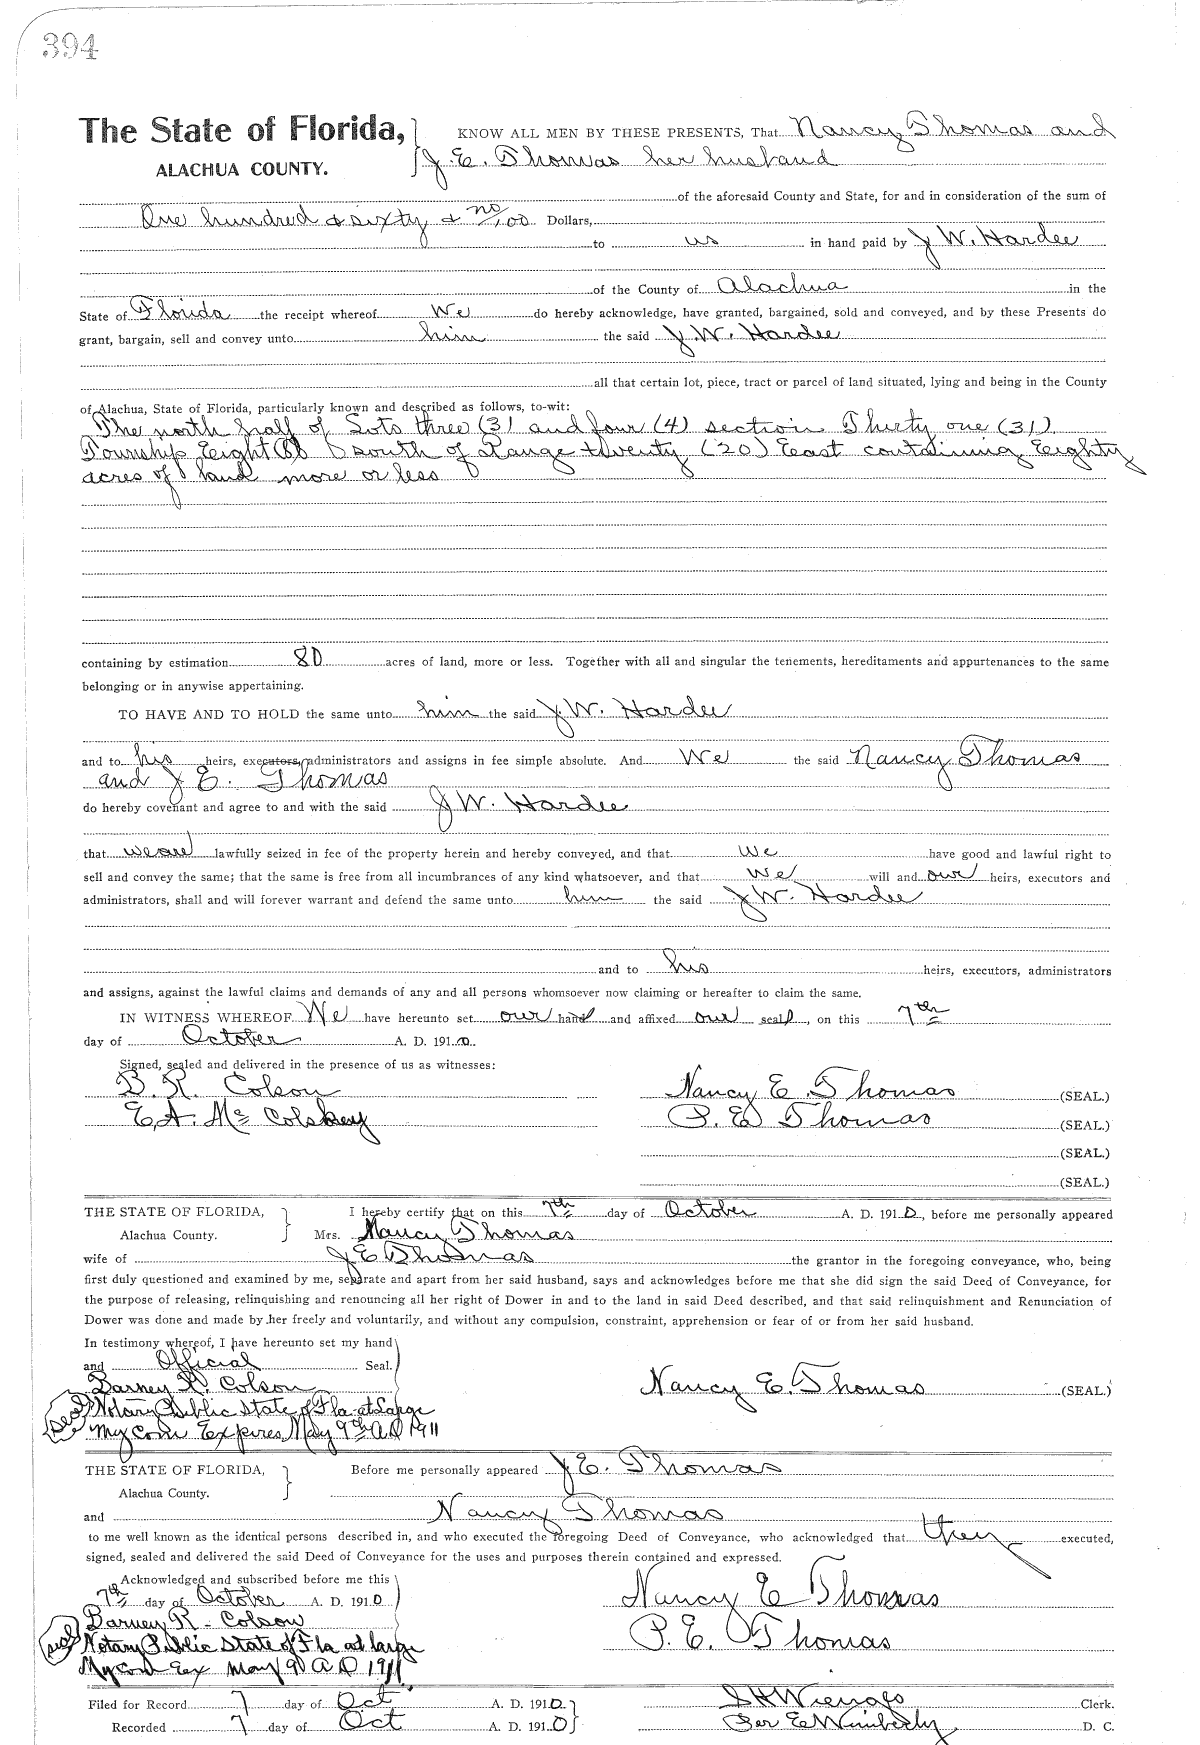 394
The State of Florida, KNOW ALL MEN BY THESE PRESENTS, That Nancy Thomas and
ALACHUA COUNTY. J. E. Thomas her husband
of the aforesaid County and State, for and in consideration of the sum of
One hundred & sixty & no/100 Dollars,
to us in hand paid by J W. Hardee
of the County of Alachua in the
State of Florida the receipt whereof We do hereby acknowledge, have granted, bargained, sold and conveyed, and by these Presents do
grant, bargain, sell and convey unto him the said J. W. Hardee
all that certain lot, piece, tract or parcel of land situated, lying and being in the County
of Alachua, State of Florida, particularly known and described as follows, to-wit:
The north half of Lots three (3) and four (4) section Thirty one (31)
Township Eight (8) south of Range twenty (20) East containing Eighty
acres of land more or less
containing by estimation 80 acres of land, more or less. Together with all and singular the tenements, hereditaments and appurtenances to the same
belonging or in anywise appertaining.
TO HAVE AND TO HOLD the same unto him the said J. W. Hardee
and to his heirs, executors, administrators and assigns in fee simple absolute. And We the said Nancy Thomas
and J E. Thomas
do hereby covenant and agree to and with the said J W. Hardee
that we are lawfully seized in fee of the property herein and hereby conveyed, and that we have good and lawful right to
sell and convey the same; that the same is free from all incumbrances of any kind whatsoever, and that we will and our heirs, executors and
administrators, shall and will forever warrant and defend the same unto him the said J W. Hardee
and to his heirs, executors, administrators
and assigns, against the lawful claims and demands of any and all persons whomsoever now claiming or hereafter to claim the same.
IN WITNESS WHEREOF We have hereunto set our hand and affixed our seal, on this 7th
day of October A. D. 1910.
Signed, sealed and delivered in the presence of us as witnesses:
B. R. Colson Nancy E Thomas (SEAL.)
E. A. Mc Colskey P. E. Thomas (SEAL.)
(SEAL.)
(SEAL.)
THE STATE OF FLORIDA, I hereby certify that on this 7th day of October A. D. 1910, before me personally appeared
Alachua County. Mrs. Nancy Thomas
wife of J E Thomas the grantor in the foregoing conveyance, who, being
first duly questioned and examined by me, separate and apart from her said husband, says and acknowledges before me that she did sign the said Deed of Conveyance, for
the purpose of releasing, relinquishing and renouncing all her right of Dower in and to the land in said Deed described, and that said relinquishment and Renunciation of
Dower was done and made by her freely and voluntarily, and without any compulsion, constraint, apprehension or fear of or from her said husband.
In testimony whereof, I have hereunto set my hand
and Official Seal.
Barney R. Colson Nancy E. Thomas (SEAL.)
seal Notary Public State of Fla at Large
My Com Expires May 9th A D 1911
THE STATE OF FLORIDA, Before me personally appeared J E. Thomas
Alachua County.
and Nancy Thomas
to me well known as the identical persons described in, and who executed the foregoing Deed of Conveyance, who acknowledged that they executed,
signed, sealed and delivered the said Deed of Conveyance for the uses and purposes therein contained and expressed.
Acknowledged and subscribed before me this Nancy E Thomas
7th day of October A. D. 1910
Barney R. Colson P. E. Thomas
seal Notary Public State of Fla at large
My Com Ex May 9 A D 1911
Filed for Record 7 day of Oct A. D. 1910 S H Wienges Clerk.
Recorded 7 day of Oct A. D. 1910 Per E Wimberly D. C.